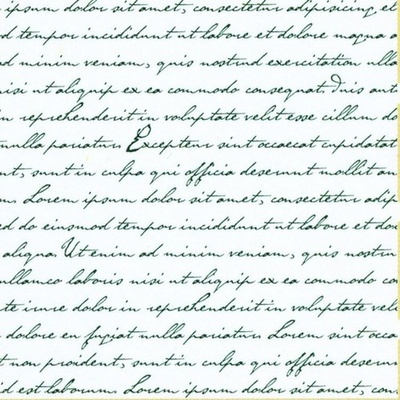 ipsum dolor sit amet, consectetur adipisicing el
d tempor incididunt ut labore et dolore magna a
ad minim veniam, quis nostrud exercitation ulla
nisi ut aliquip ex ea commodo consequat. Duis aut
in reprehenderit in voluptate velit esse cillum do
nulla pariatur. Excepteur sint occaecat cupidatat
nt, sunt in culpa qui officia deserunt mollit an
m. Lorem ipsum dolor sit amet, consectetur adip
ed do eiusmod tempor incididunt ut labore et do
aliqua. Ut enim ad minim veniam, quis nostru
ullamco laboris nisi ut aliquip ex ea commodo co
te irure dolor in reprehenderit in voluptate veli
dolore eu fugiat nulla pariatur. Lorem sint occa
t non proident, sunt in culpa qui officia deseru
id est laborum. Lorem ipsum dolor sit amet, con